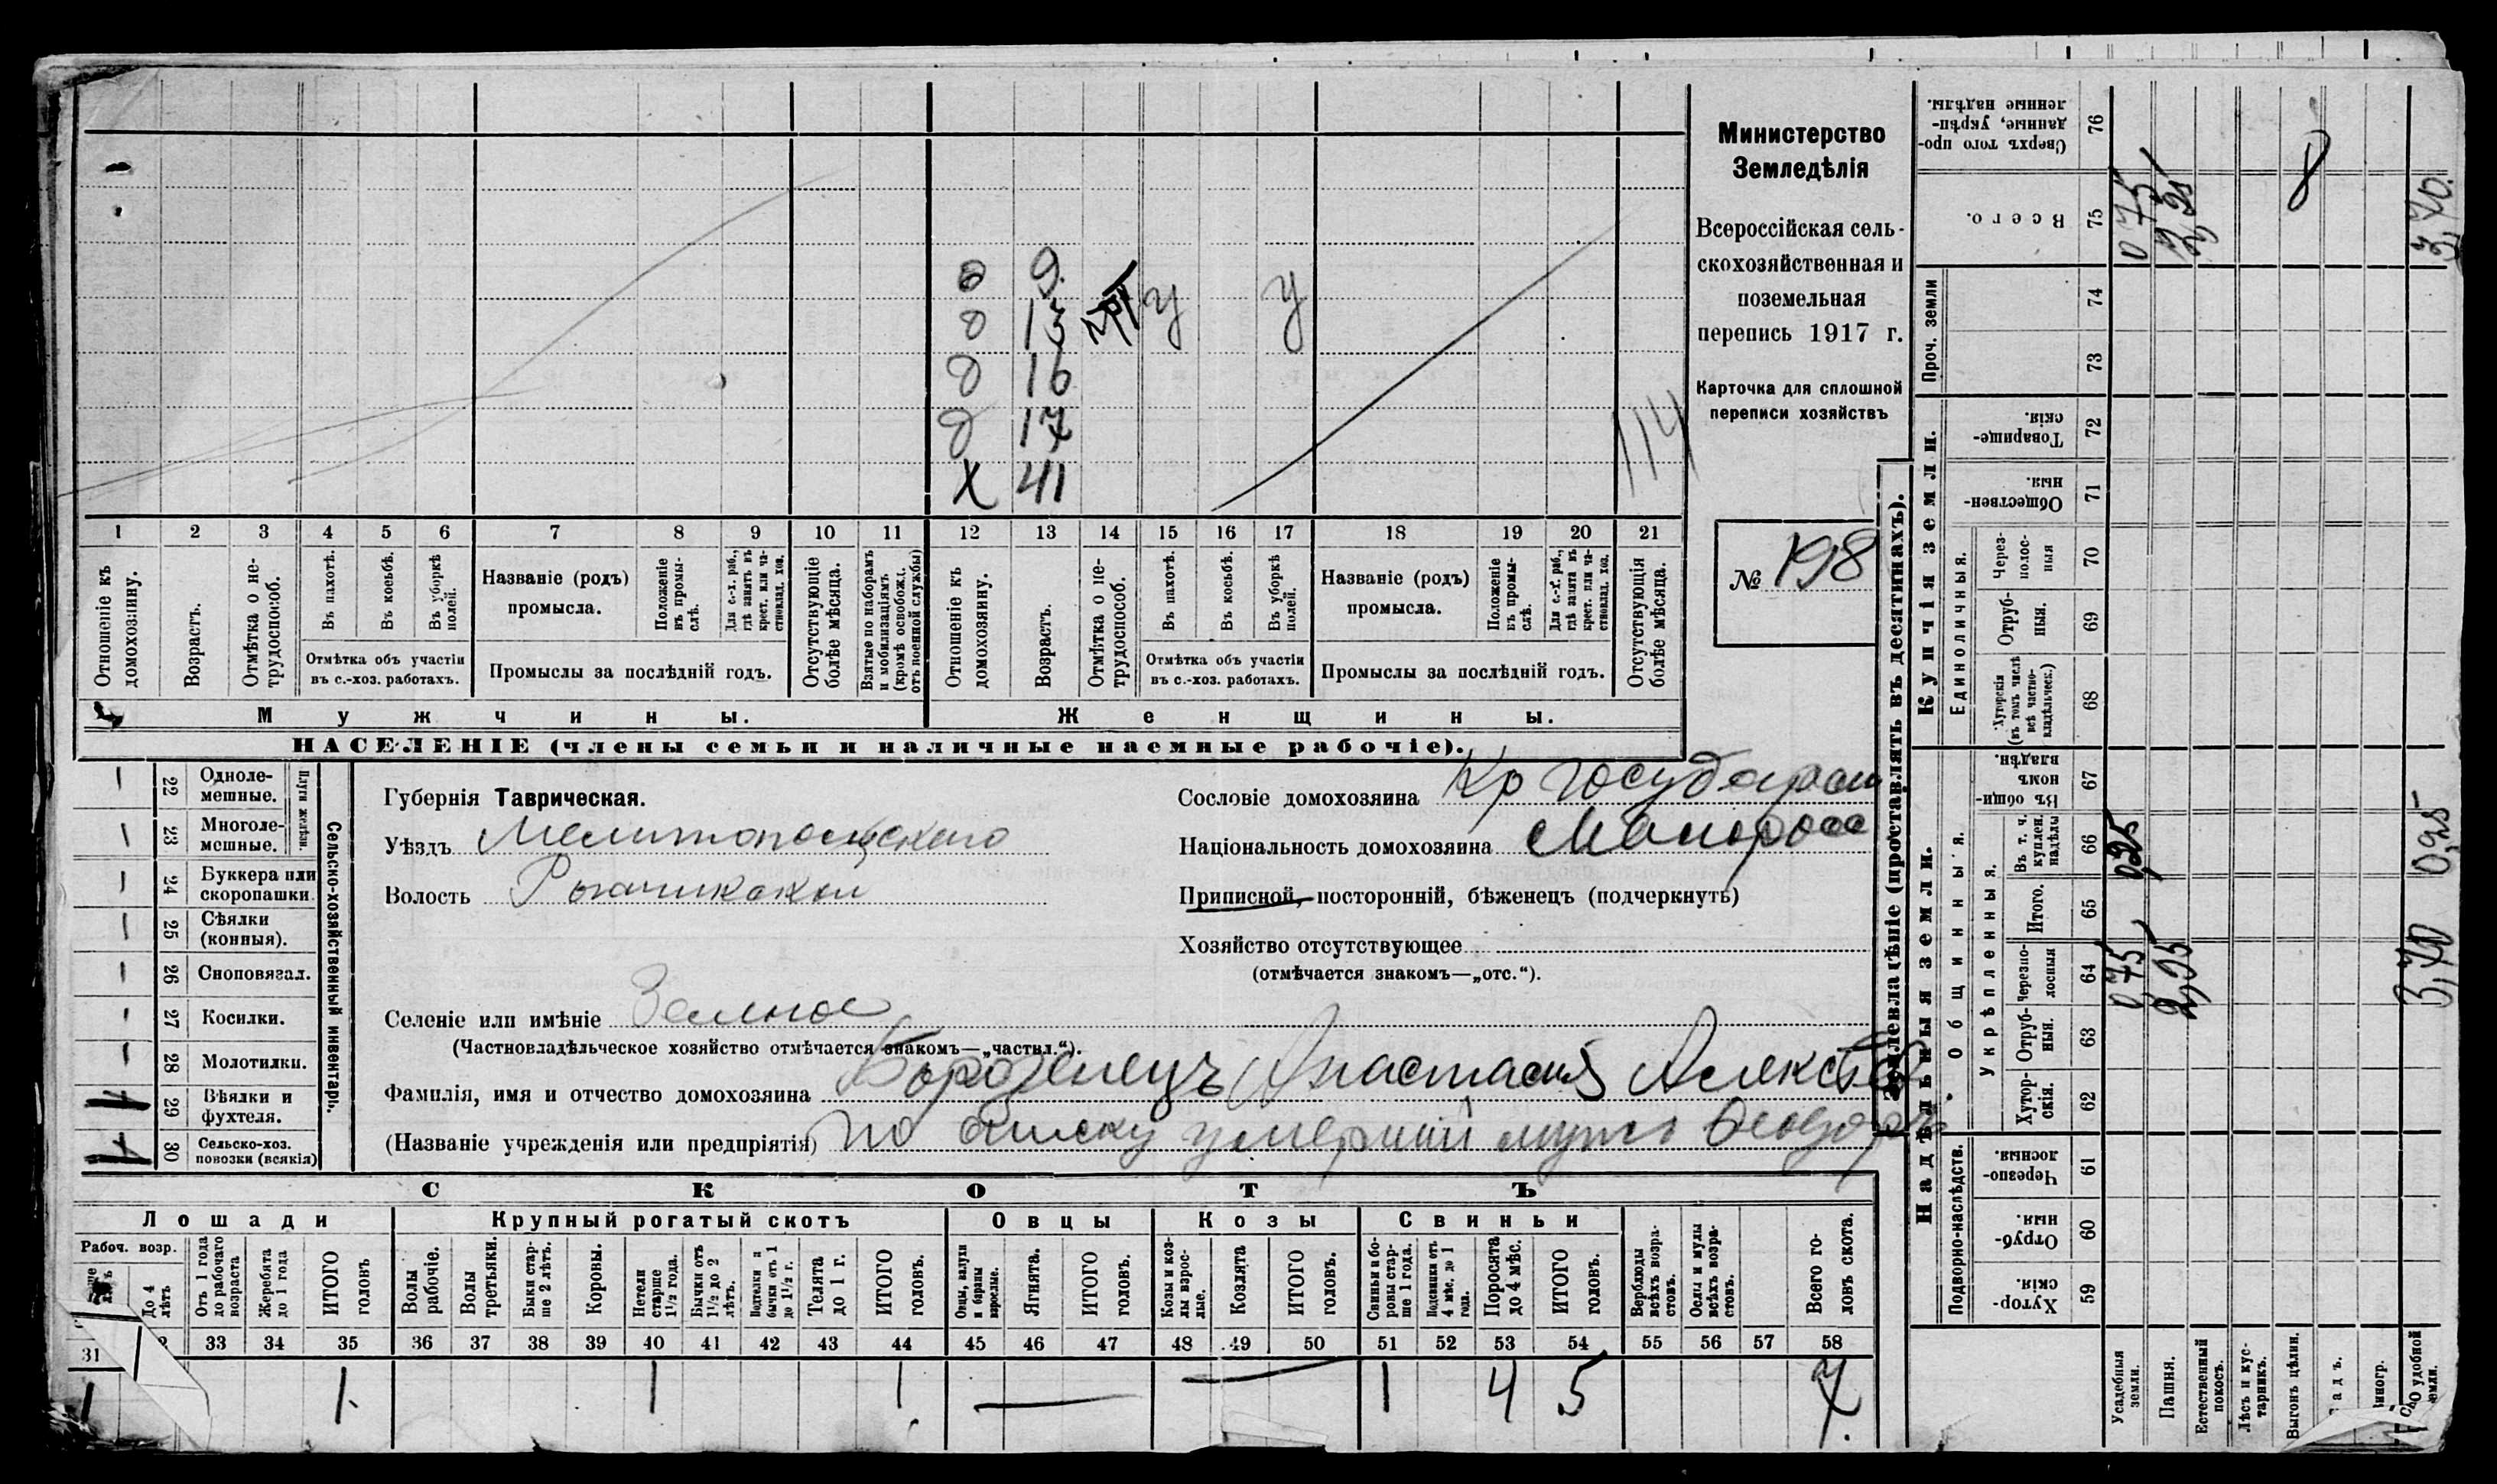 Министерство
Земледѣлія
Всероссійская сель-
скохозяйственная и
поземельная
перепись 1917 г.
Карточка для сплошной
переписи хозяйствъ
№ 198
д 9
д 13 у у
д 16
д 17
Х 41
114
1 2 3 4 5 6 7 8 9 10 11 12 13 14 15 16 17 18 19 20 21
Отношеніе къ домохозяину.
Возрастъ.
Отмѣтка о не-трудоспособ.
Въ пахотѣ.
Въ косьбѣ.
Въ уборкѣ полей.
Отмѣтка объ участіи
въ с.-хоз. работахъ.
Названіе (родъ)
промысла.
Положеніе въ промы-слѣ.
Для с.-х. раб., гдѣ занятъ въ крест. или ча-ствовлад. хоз.
Промыслы за послѣдній годъ.
Отсутствующіе болѣе мѣсяца.
Взятые по наборамъ и мобилизаціямъ (кромѣ освобожд. отъ военной службы)
Отношеніе къ домохозяину.
Возрастъ.
Отмѣтка о не-трудоспособ.
Въ пахотѣ.
Въ косьбѣ.
Въ уборкѣ полей.
Отмѣтка объ участіи
въ с.-хоз. работахъ.
Названіе (родъ)
промысла.
Положеніе въ промы-слѣ.
Для с.-х. раб., гдѣ занята въ крест. или ча-ствовлад. хоз.
Промыслы за послѣдній годъ.
Отсутствующія болѣе мѣсяца.
Мужчины.
Женщины.
НАСЕЛЕНІЕ (члены семьи и наличные наемные рабочіе).
22 Одноле-мешные.
23 Многоле-мешные.
Плуги желѣзн.
24 Буккера или скоропашки
25 Сѣялки (конныя).
26 Сноповязал.
27 Косилки.
28 Молотилки.
29 Вѣялки и фухтеля.
30 Сельско-хоз. повозки (всякія)
Сельско-хозяйственный инвентарь.
Губернія Таврическая.
Уѣздъ Мелитопольскаго
Волость Рогачикской
Селеніе или имѣніе Зеленое
(Частновладѣльческое хозяйство отмѣчается знакомъ—„частвл.“).
Фамилія, имя и отчество домохозяина Борозенецъ Анастасия Алексѣев
(Названіе учрежденія или предпріятія) по списку умерший мужъ Феодоръ
Сословіе домохозяина Кр государст
Національность домохозяина Малоросс
Приписной, посторонній, бѣженецъ (подчеркнуть)
Хозяйство отсутствующее
(отмѣчается знакомъ—„отс.“).
СКОТЪ
Лошади
Рабоч. возр.
До 4 лѣтъ
Отъ 1 года до рабочаго возраста
Жеребята до 1 года
ИТОГО головъ
Крупный рогатый скотъ
Волы рабочіе.
Волы третьяки.
Быки стар-ше 2 лѣтъ.
Коровы.
Нетели старше 1½ года.
Бычки отъ 1½ до 2 лѣтъ.
Подтелки и бычки отъ 1 до 1½ г.
Телята до 1 г.
ИТОГО головъ.
Овцы
Овцы, валухи и бараны взрослые.
Ягнята.
ИТОГО головъ.
Козы
Козы и коз-лы взрос-лые.
Козлята
ИТОГО головъ.
Свиньи
Свиньи и бо-ровы стар-ше 1 года.
Подсвинки отъ 4 мѣс. до 1 года.
Поросята до 4 мѣс.
ИТОГО головъ.
Верблюды всѣхъ возра-стовъ.
Ослы и мулы всѣхъ возра-стовъ.
Всего го-ловъ скота.
31 33 34 35 36 37 38 39 40 41 42 43 44 45 46 47 48 49 50 51 52 53 54 55 56 57 58
1 1 1 1 1 4 5 7
Землевладѣніе (проставлять въ десятинахъ).
Надѣльныя земли.
Купчія земли.
Проч. земли
Подворно-наслѣдств.
Общинныя.
Укрѣпленныя.
Единоличныя.
Сверхъ того про-данные, укрѣп-ленные надѣлы. 76
Всего. 75 0,75 3,70
74
73
Товарище-скія. 72
Обществен-ныя. 71
Через-полос-ныя 70
Отруб-ныя. 69
Хуторскія (въ томъ числѣ всѣ частно-владѣльческ.) 68
Въ общи-номъ владѣн. 67
Въ т. ч. куплен. надѣлы 66 0,25 0,25
Итого. 65
Черезпо-лосныя 64 0,75 2,95 3,70
Отруб-ныя. 63
Хутор-скія. 62
Черезпо-лосныя. 61
Отруб-ныя. 60
Хутор-скія. 59
Усадебныя земли.
Пашня.
Естественный покосъ.
Лѣсъ и кус-тарникъ.
Выгонъ цѣлин.
удобной земли.